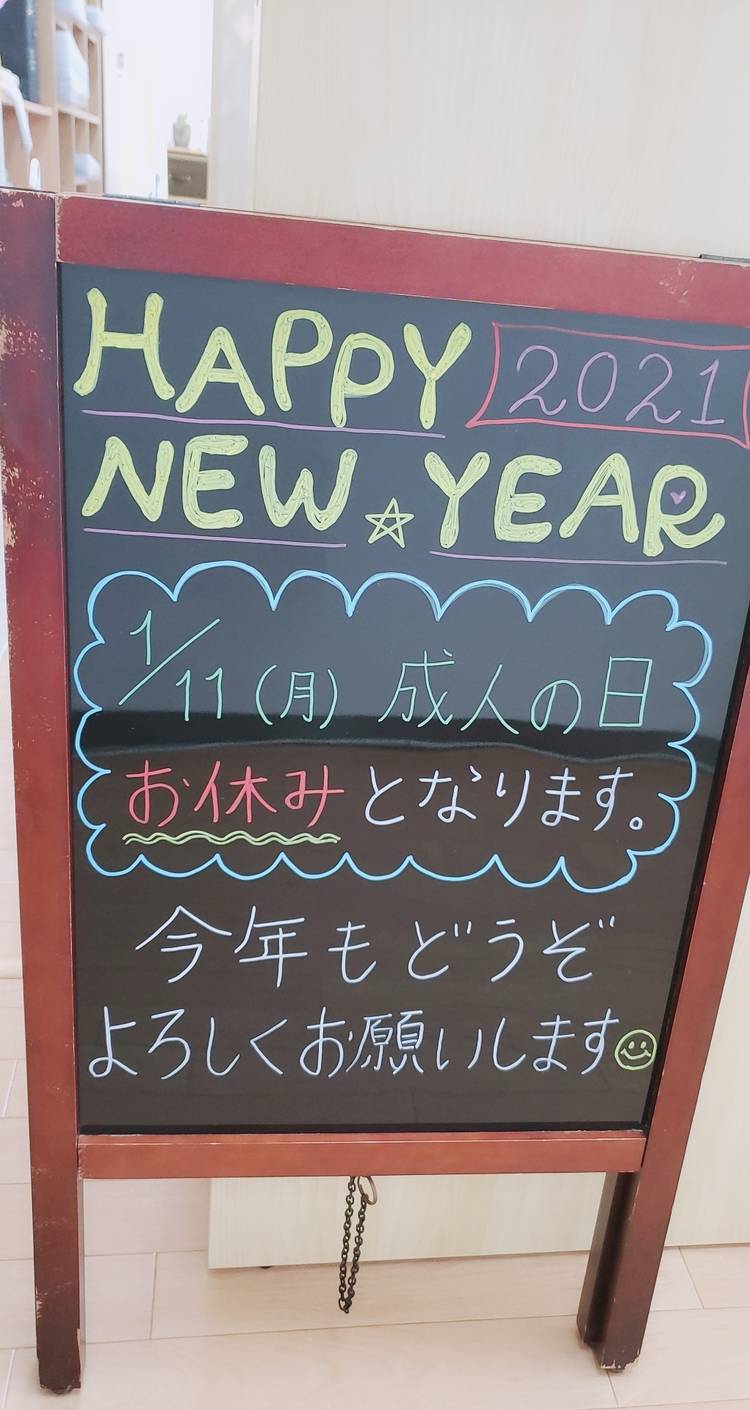 HAPPY 2021
NEW☆YEAR
1/11(月) 成人の日
お休みとなります。
今年もどうぞ
よろしくお願いします☺